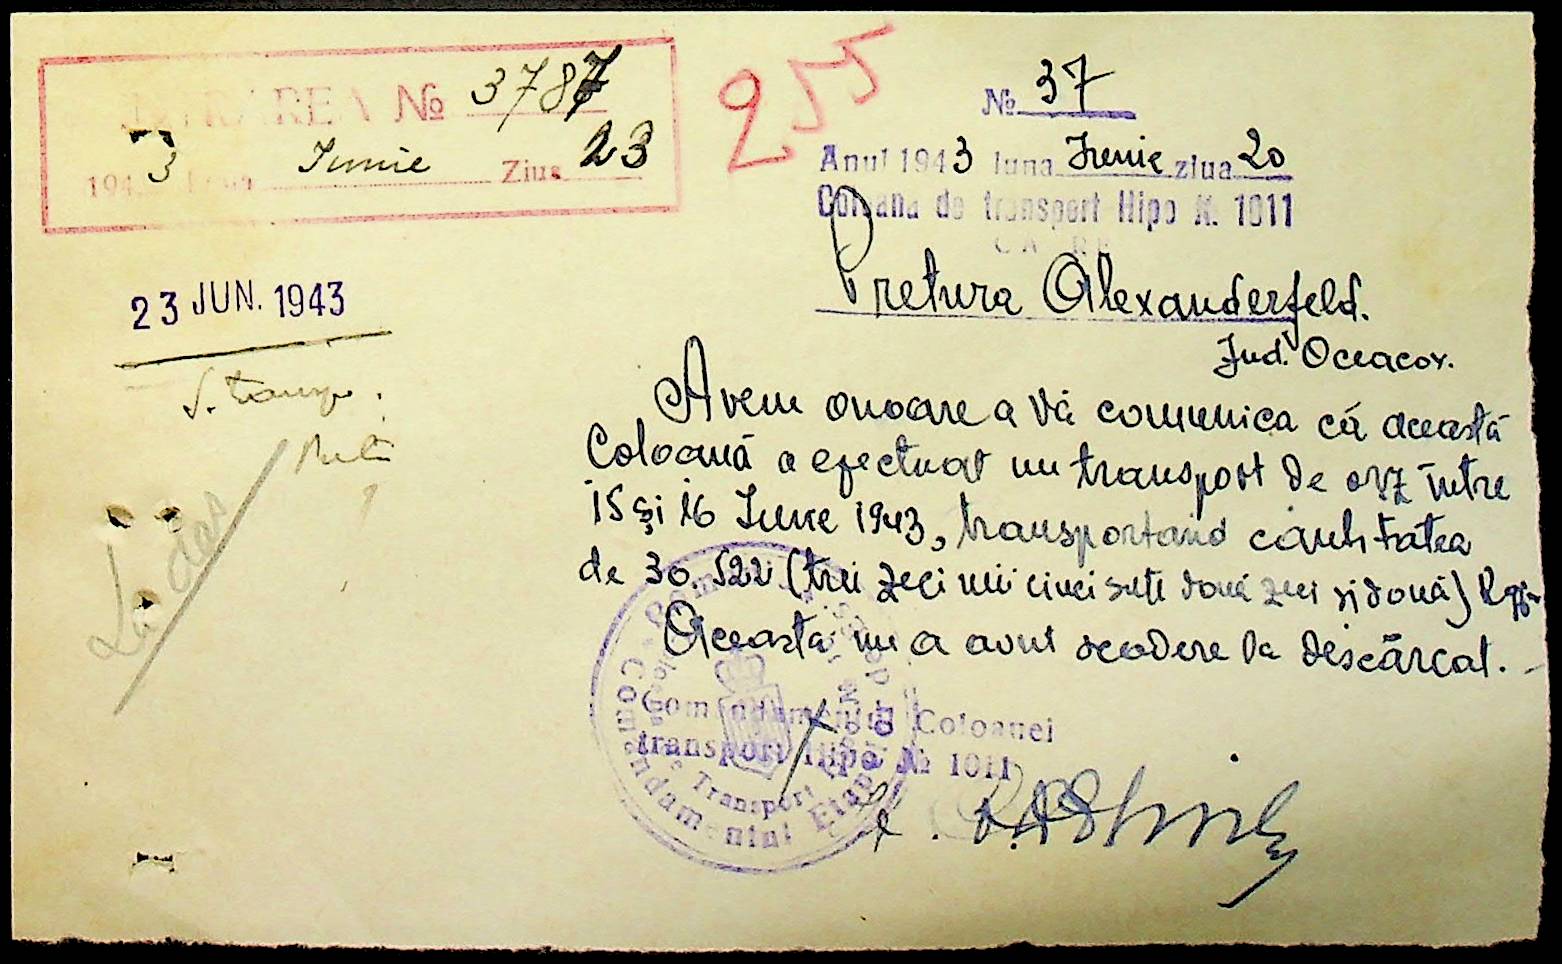 INTRAREA № 3787
1943 Luna Iunie Ziua 23
255
№ 37
Anul 1943 luna Iunie ziua 20
Coloana de transport Hipo N. 1011
CATRE
Pretura Alexanderfeld.
Jud. Oceacov.
23 JUN. 1943
La dos
Avem onoare a Vă comunica că această
Coloană a efectuat un transport de orz între
15 și 16 Iunie 1943, transportând cantitatea
de 30.522 (trei zeci mii cinci sute două zeci și două) Kgr.
Aceasta nu a avut scădere la descărcat.
Comandamentul Coloanei
transport Hipo № 1011
Comandamentul Etape
de Transport